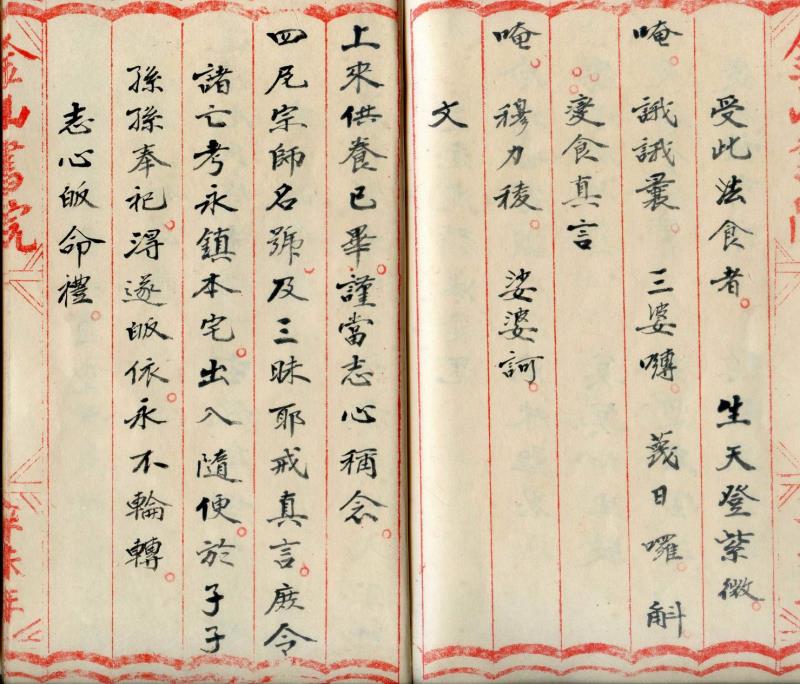 受此法食者。 生天登紫微。
唵。 誐誐曩。 三婆嚩。 襪日囉 斛
变食真言
唵。 穆力稜。 娑婆訶。
文
上來供養已畢謹當志心稱念。
四尼宗師名號。及三昧耶戒真言庶令
諸亡考永鎮本宅。出入隨便。於子子
孫孫奉祀。淂遂皈依。永不輪轉。
志心皈命禮。
金山書院
辛未年